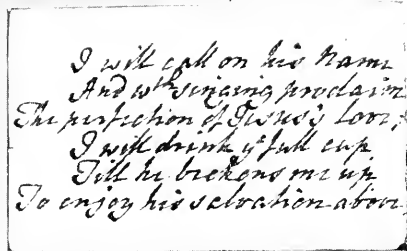 I will call on his Name
And wth singing proclaim
The perfection of Jesus's Love,
I will drink ye full cup
Till he beckons me up
To enjoy his salvation above